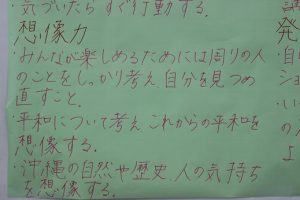 ・気づいたら すぐ行動する.
想像力
・みんなが楽しめるためには周りの人
のことをしっかり考え 自分を見つめ
直すこと.
・平和について考え これからの平和を
想像する.
・沖縄の自然や歴史、人の気持ち
を想像する.
発